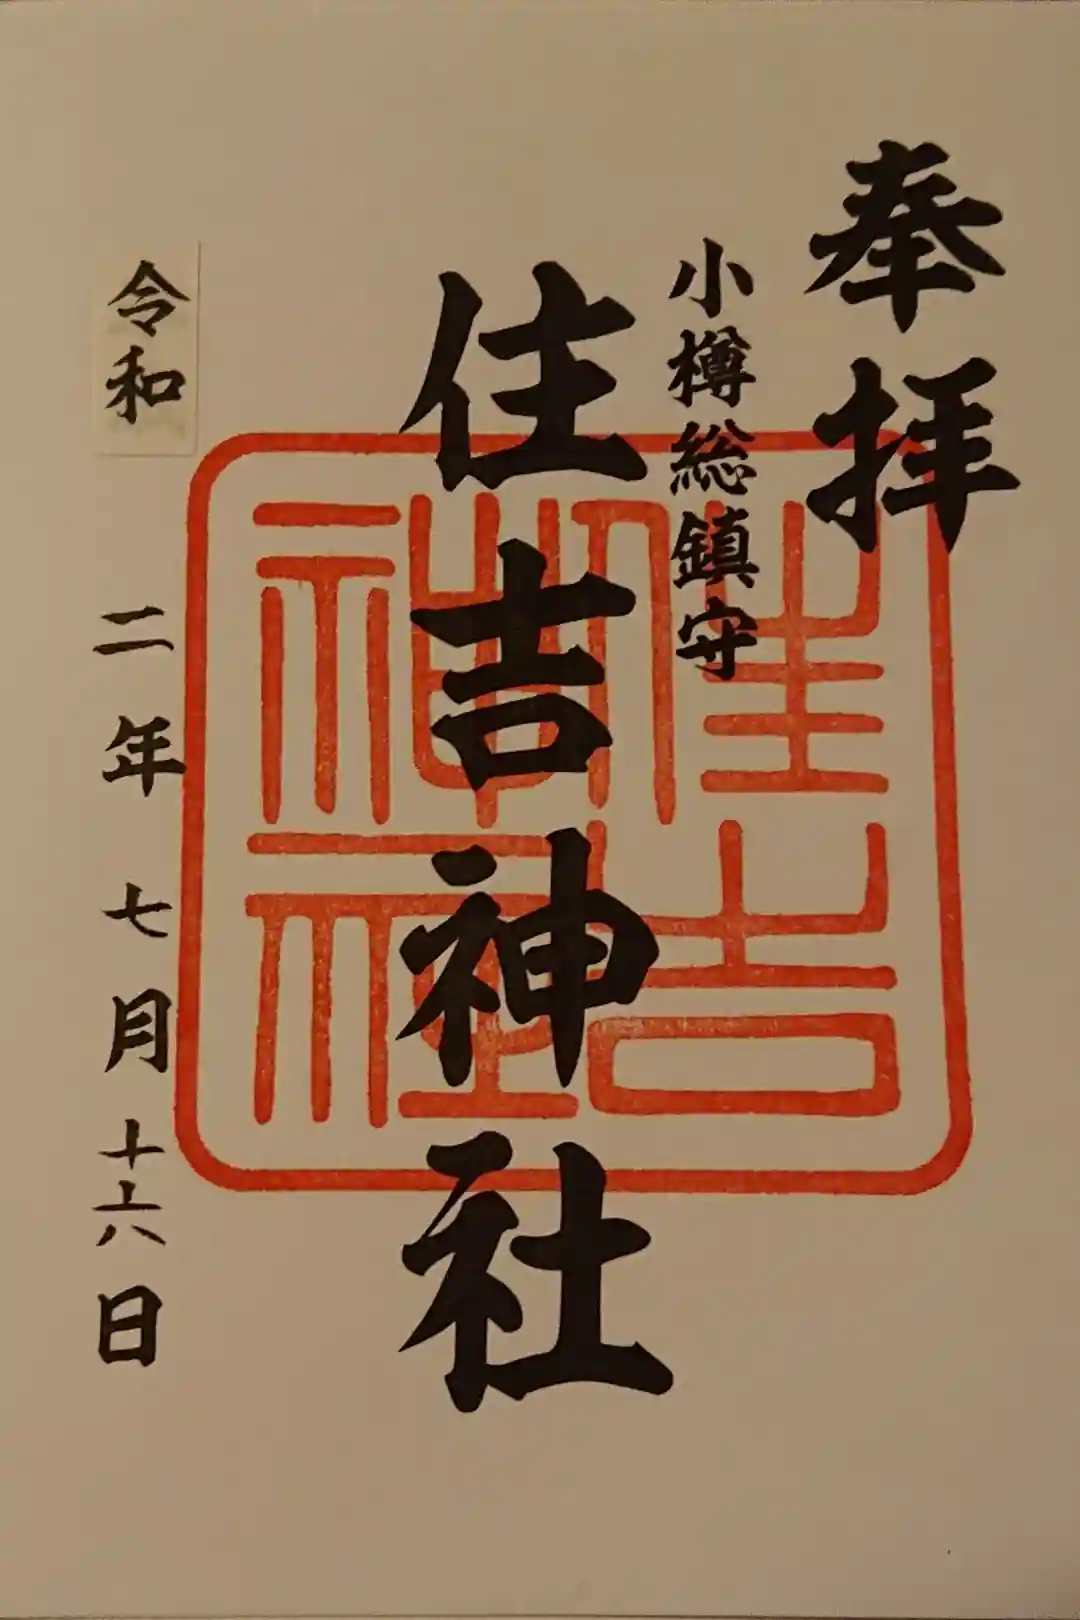 奉拝
小樽総鎮守
住吉神社
住吉神社
令和二年七月十六日